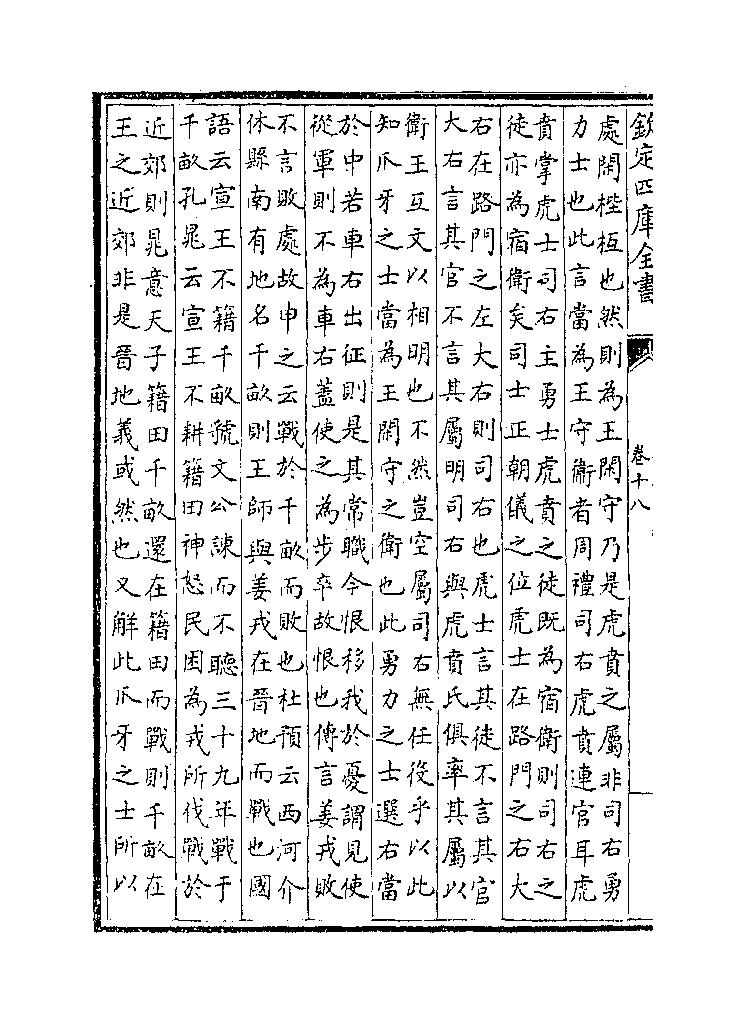 欽定四庫全書
卷十八
處閑梐枑也然則為王閑守乃是虎賁之屬非司右勇
力士也此言當為王守衛者周禮司右虎賁連官耳虎
賁掌虎士司右主勇士虎賁之徒既為宿衛則司右之
徒亦為宿衛矣司士正朝儀之位虎士在路門之右大
右在路門之左大右則司右也虎士言其徒不言其官
大右言其官不言其屬明司右與虎賁氏俱率其屬以
衛王互文以相明也不然豈空屬司右無任役乎以此
知爪牙之士當為王閑守之衛也此勇力之士選右當
於中若車右出征則是其常職今恨移我於憂謂見使
從軍則不為車右蓋使之為步卒故恨也傳言姜戎敗
不言敗處故申之云戰於千畝而敗也杜預云西河介
休縣南有地名千畝則王師與姜戎在晉地而戰也國
語云宣王不籍千畝虢文公諫而不聽三十九年戰于
千畝孔晁云宣王不耕籍田神怒民困為戎所伐戰於
近郊則晁意天子籍田千畝還在籍田而戰則千畝在
王之近郊非是晉地義或然也又解此爪牙之士所以